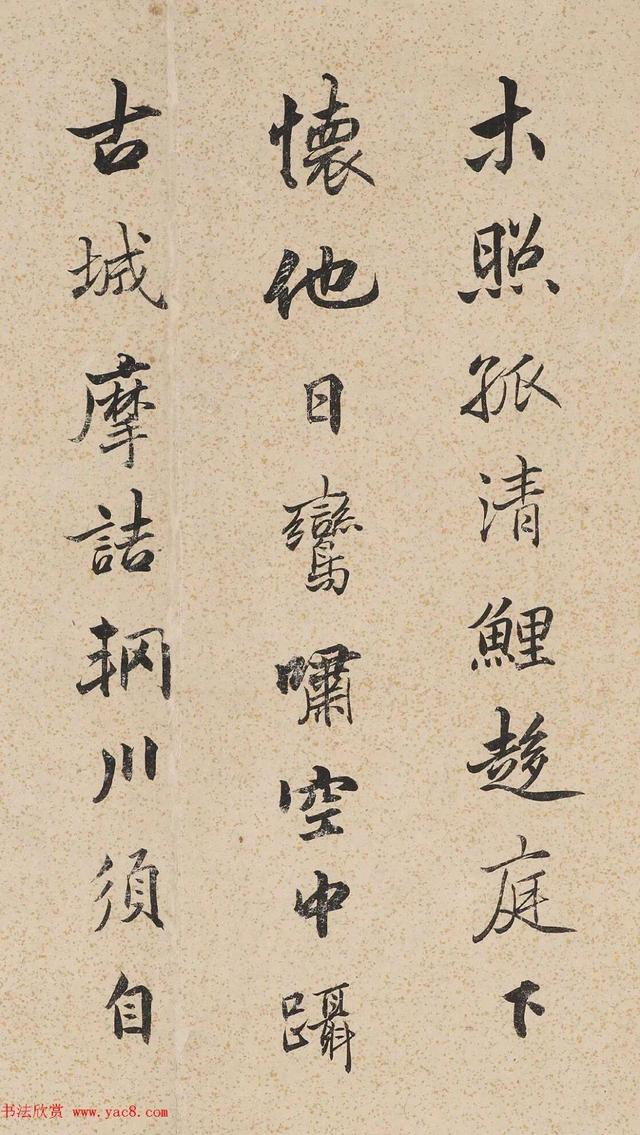 木照孤清鯉趍庭下
懷他日鸞嘯空中躡
古城摩詰輞川須自
书法欣赏 www.yac8.com